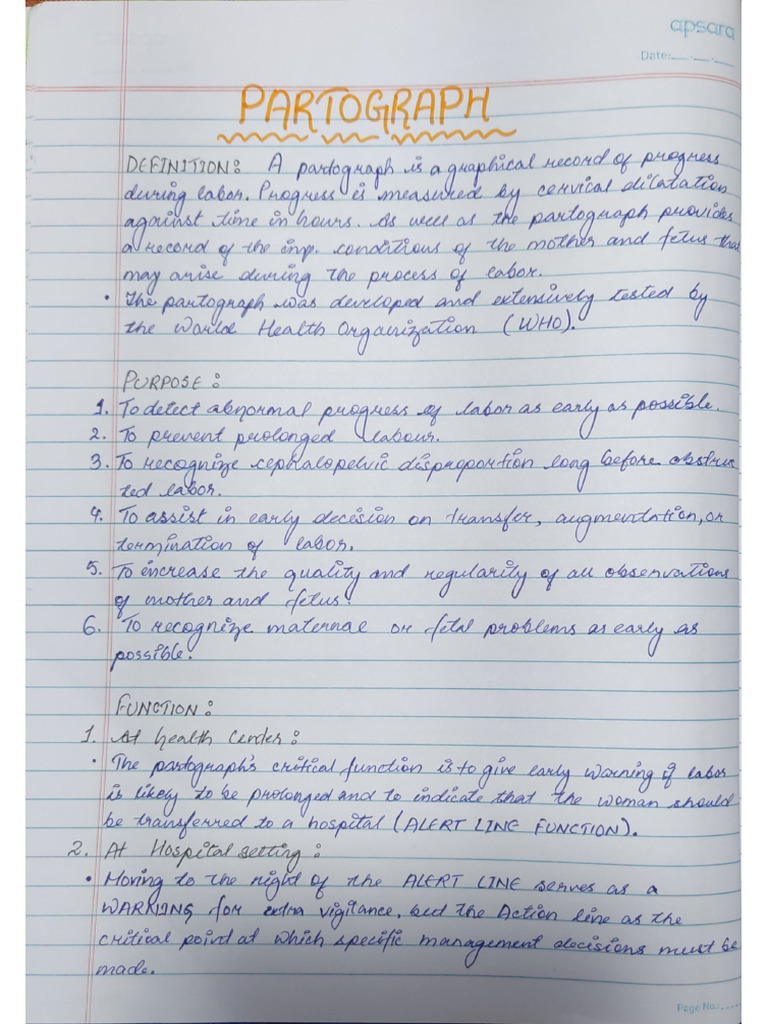 apsara
Date:
PARTOGRAPH
DEFINITION: A partograph is a graphical record of progress
during labor. Progress is measured by cervical dilatation
against time in hours. As well as the partograph provides
a record of the imp. conditions of the mother and fetus that
may arise during the process of labor.
• The partograph was developed and extensively tested by
the World Health Organization (WHO).
PURPOSE:
1. To detect abnormal progress of labor as early as possible.
2. To prevent prolonged labour.
3. To recognize cephalopelvic disproportion long before obstruc
ted labor.
4. To assist in early decision on transfer, augmentation, or
termination of labor.
5. To increase the quality and regularity of all observations
of mother and fetus.
6. To recognize maternal or fetal problems as early as
possible.
FUNCTION:
1. At health Center:
• The partograph's critical function is to give early warning if labor
is likely to be prolonged and to indicate that the woman should
be transferred to a hospital (ALERT LINE FUNCTION).
2. At Hospital setting:
• Moving to the right of the ALERT LINE serves as a
WARNING for extra vigilance, but the Action line as the
critical point at which specific management decisions must be
made.
Page No.: